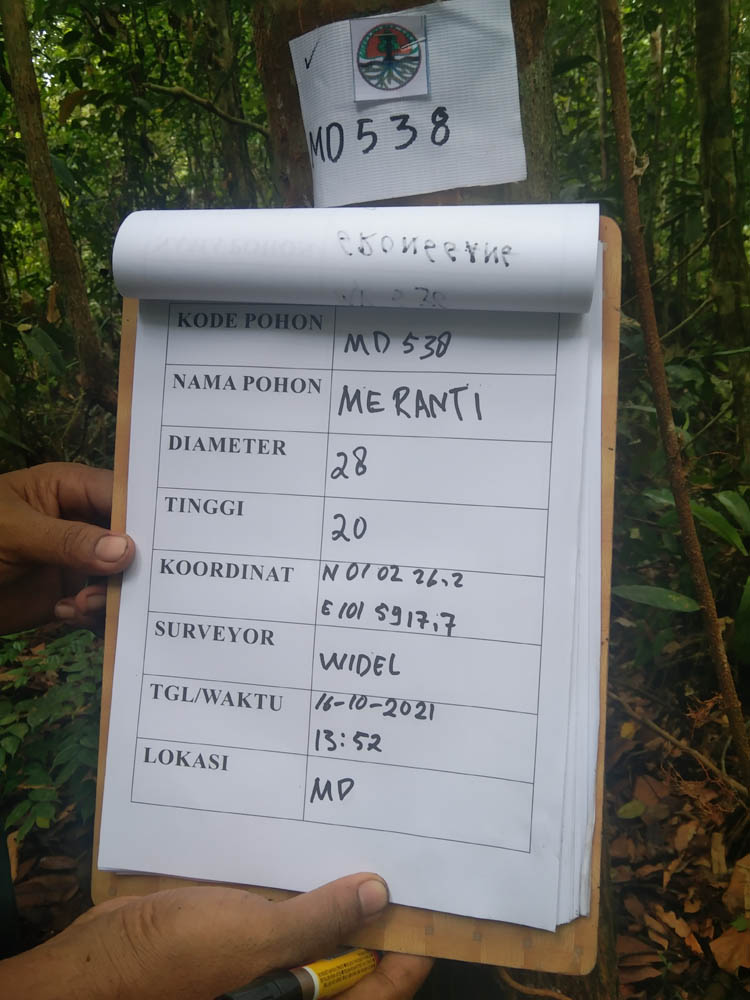 MD 538
GRONGGANG
KODE POHON MD 538
NAMA POHON MERANTI
DIAMETER 28
TINGGI 20
KOORDINAT N 01 02 26,2
E 101 59 17,7
SURVEYOR WIDEL
TGL/WAKTU 16-10-2021
13:52
LOKASI MD